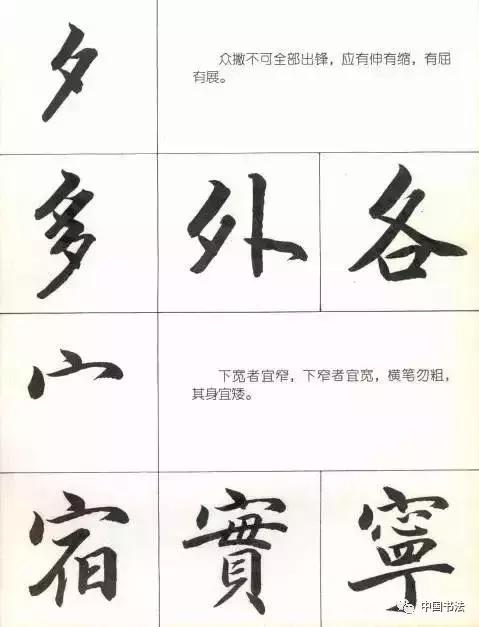 夕
众撇不可全部出锋，应有伸有缩，有屈
有展。
多 外 各
宀
下宽者宜窄，下窄者宜宽，横笔勿粗，
其身宜矮。
宿 實 寧
中国书法